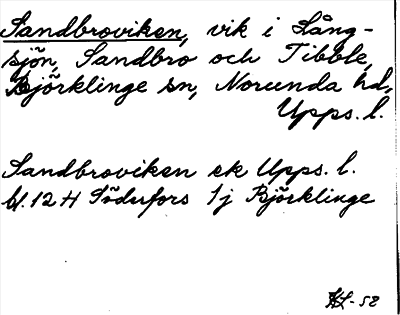 Sandbroviken, vik i Lång-
sjön, Sandbro och Tibble,
Björklinge sn, Norunda hd,
Upps. l.
Sandbroviken ek Upps. l.
bl. 12 H Söderfors 1j Björklinge
-52